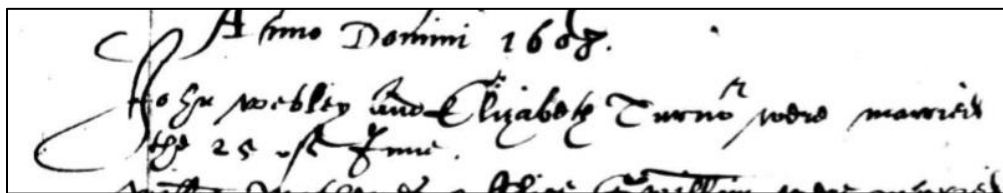 Anno Domini 1608.
John Webley and Elizabeth Turnor were married
the 25 of June.